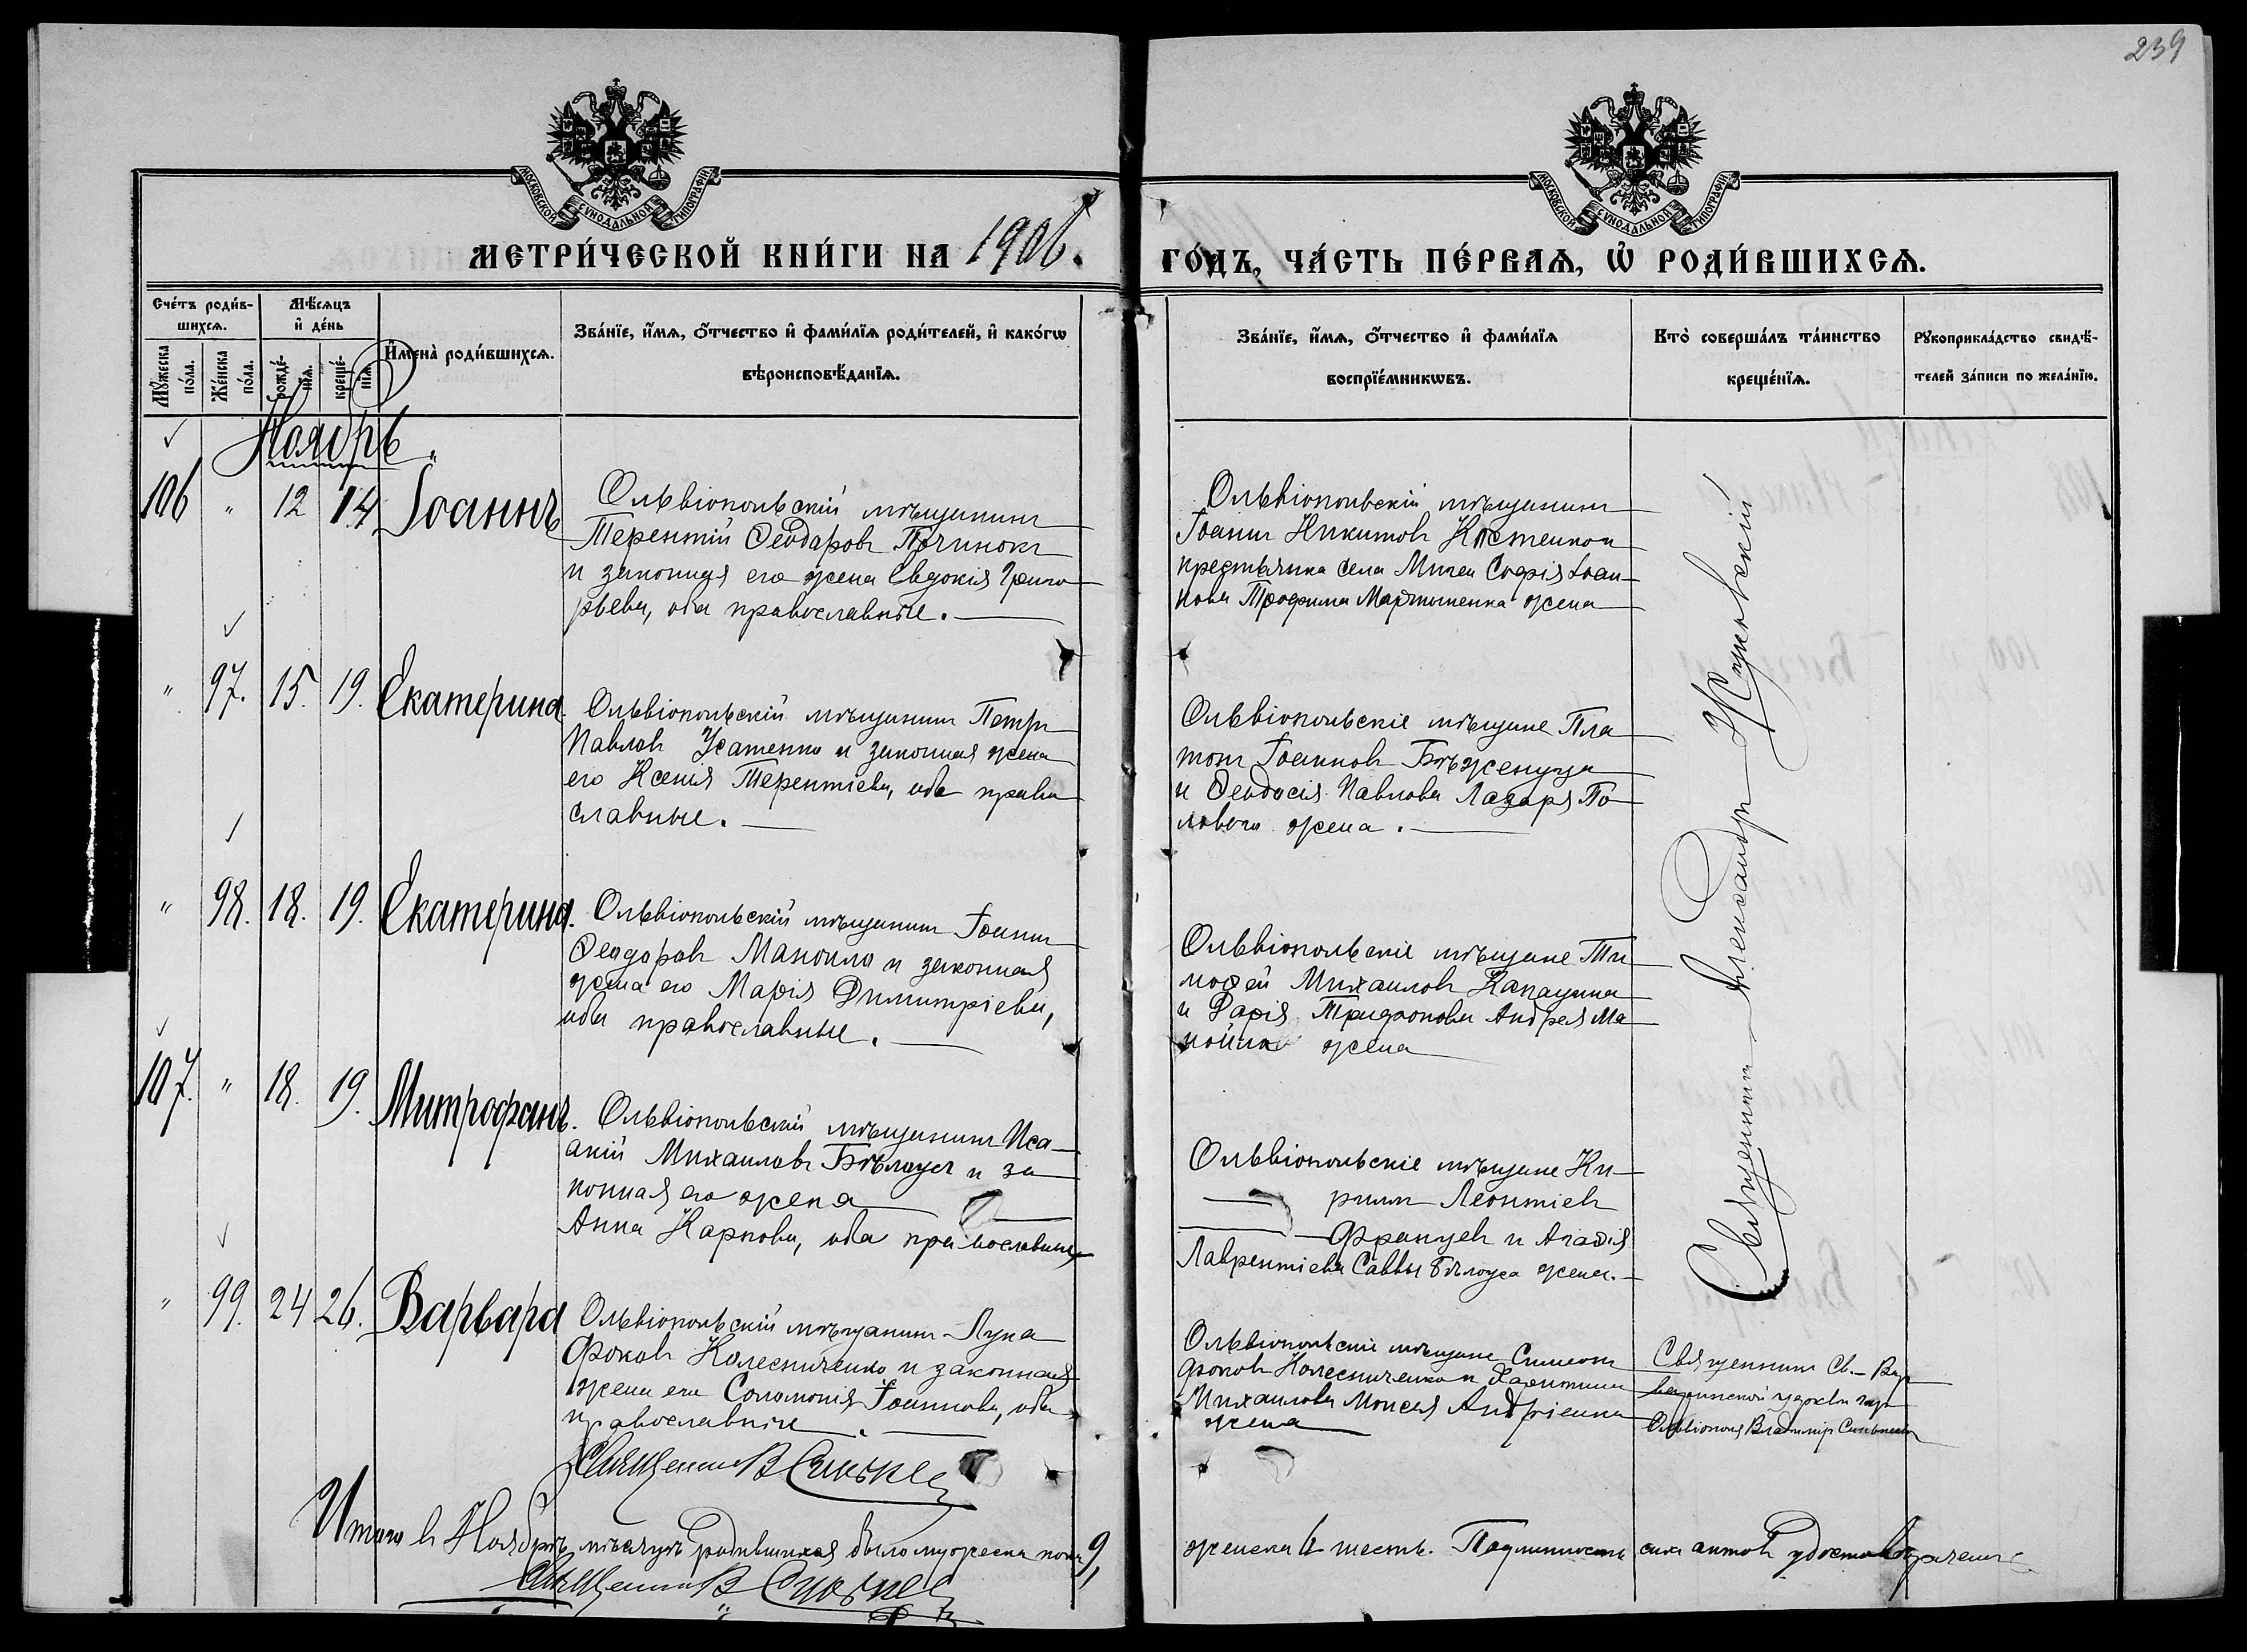 239
МОСКОВСКОЙ СѴНОДАЛЬНОЙ ТИПОГРАФІИ
МОСКОВСКОЙ СѴНОДАЛЬНОЙ ТИПОГРАФІИ
МЕТРИ́ЧЕСКОЙ КНИ́ГИ НА 1906.
ГО́ДЪ, ЧА́СТЬ ПЕ́РВАѦ, Ѡ҆ РОДИ́ВШИХСѦ.
Сче́тъ роди́в-
шихсѧ.
Мꙋ́жеска по́ла.
Же́нска по́ла.
Мѣ́сѧцъ
и҆ де́нь
рожде́-
нїѧ.
креще́-
нїѧ.
И҆мена̀ роди́вшихсѧ.
Зва́нїе, и҆́мѧ, ѻ҆́тчество и҆ фами́лїѧ роди́телей, и҆ како́гѡ
вѣроисповѣ́данїѧ.
Зва́нїе, и҆́мѧ, ѻ҆́тчество и҆ фами́лїѧ
воспрїе́мникѡвъ.
Кто̀ соверша́лъ та́инство
креще́нїѧ.
Рꙋкоприкла́дство свидѣ́-
телей за́писи по жела́нїю.
Ноябрь
106 " 12 14 Іоаннъ
Ольвіопольскій мѣщанинъ
Терентій Ѳеодоровъ Починокъ
и законная его жена Евдокія Григо
рьева, оба православные.
Ольвіопольскій мѣщанинъ
Іоаннъ Никитовъ Костенко и
крестьянка села Мигеи Софія Іоан-
нова Трофима Мартыненка жена
" 97. 15. 19. Екатерина.
Ольвіопольскій мѣщанинъ Петръ
Павловъ Усатенко и законная жена
его Ксенія Терентіева, оба право
славные.
Ольвіопольскіе мѣщане Пла
тонъ Іоанновъ Бѣженуца
и Ѳеодосія Павлова Лазаря По
лового жена.
" 98. 18. 19. Екатерина.
Ольвіопольскій мѣщанинъ Іоаннъ
Ѳеодоровъ Маноило и законная
жена его Марія Димитріева,
оба православные.
Ольвіопольскіе мѣщане Ти
моѳей Михаиловъ Капацина
и Дарія Трифонова Андрея Ма
нойло жена
107. " 18. 19. Митрофанъ.
Ольвіопольскій мѣщанинъ Иса-
акій Михаиловъ Бѣлоусъ и за
конная его жена
Анна Карпова, оба православные
Ольвіопольскіе мѣщане Ки-
риллъ Леонтіевъ
Францевъ и Агаѳія
Лаврентіева Саввы Бѣлоуса жена.
" 99. 24 26. Варвара
Ольвіопольскій мѣщанинъ Лука
Фоковъ Колесниченко и законная
жена его Соломонія Іоаннова, оба
православные.
Ольвіопольскіе мѣщане Симеонъ
Фоковъ Колесниченко и
Михаилова Моисея Андріенка
жена
Священникъ Александръ Жуковскій
Священникъ Св.-Вар
варинской церкви гор
Ольвіополя Владиміръ
Священникъ В
Итого въ Ноябрѣ мѣсяцѣ родившихся было мужеска пола 9,
женска 6 шесть. Подлинность сихъ актовъ удостовѣряемъ
Священникъ В